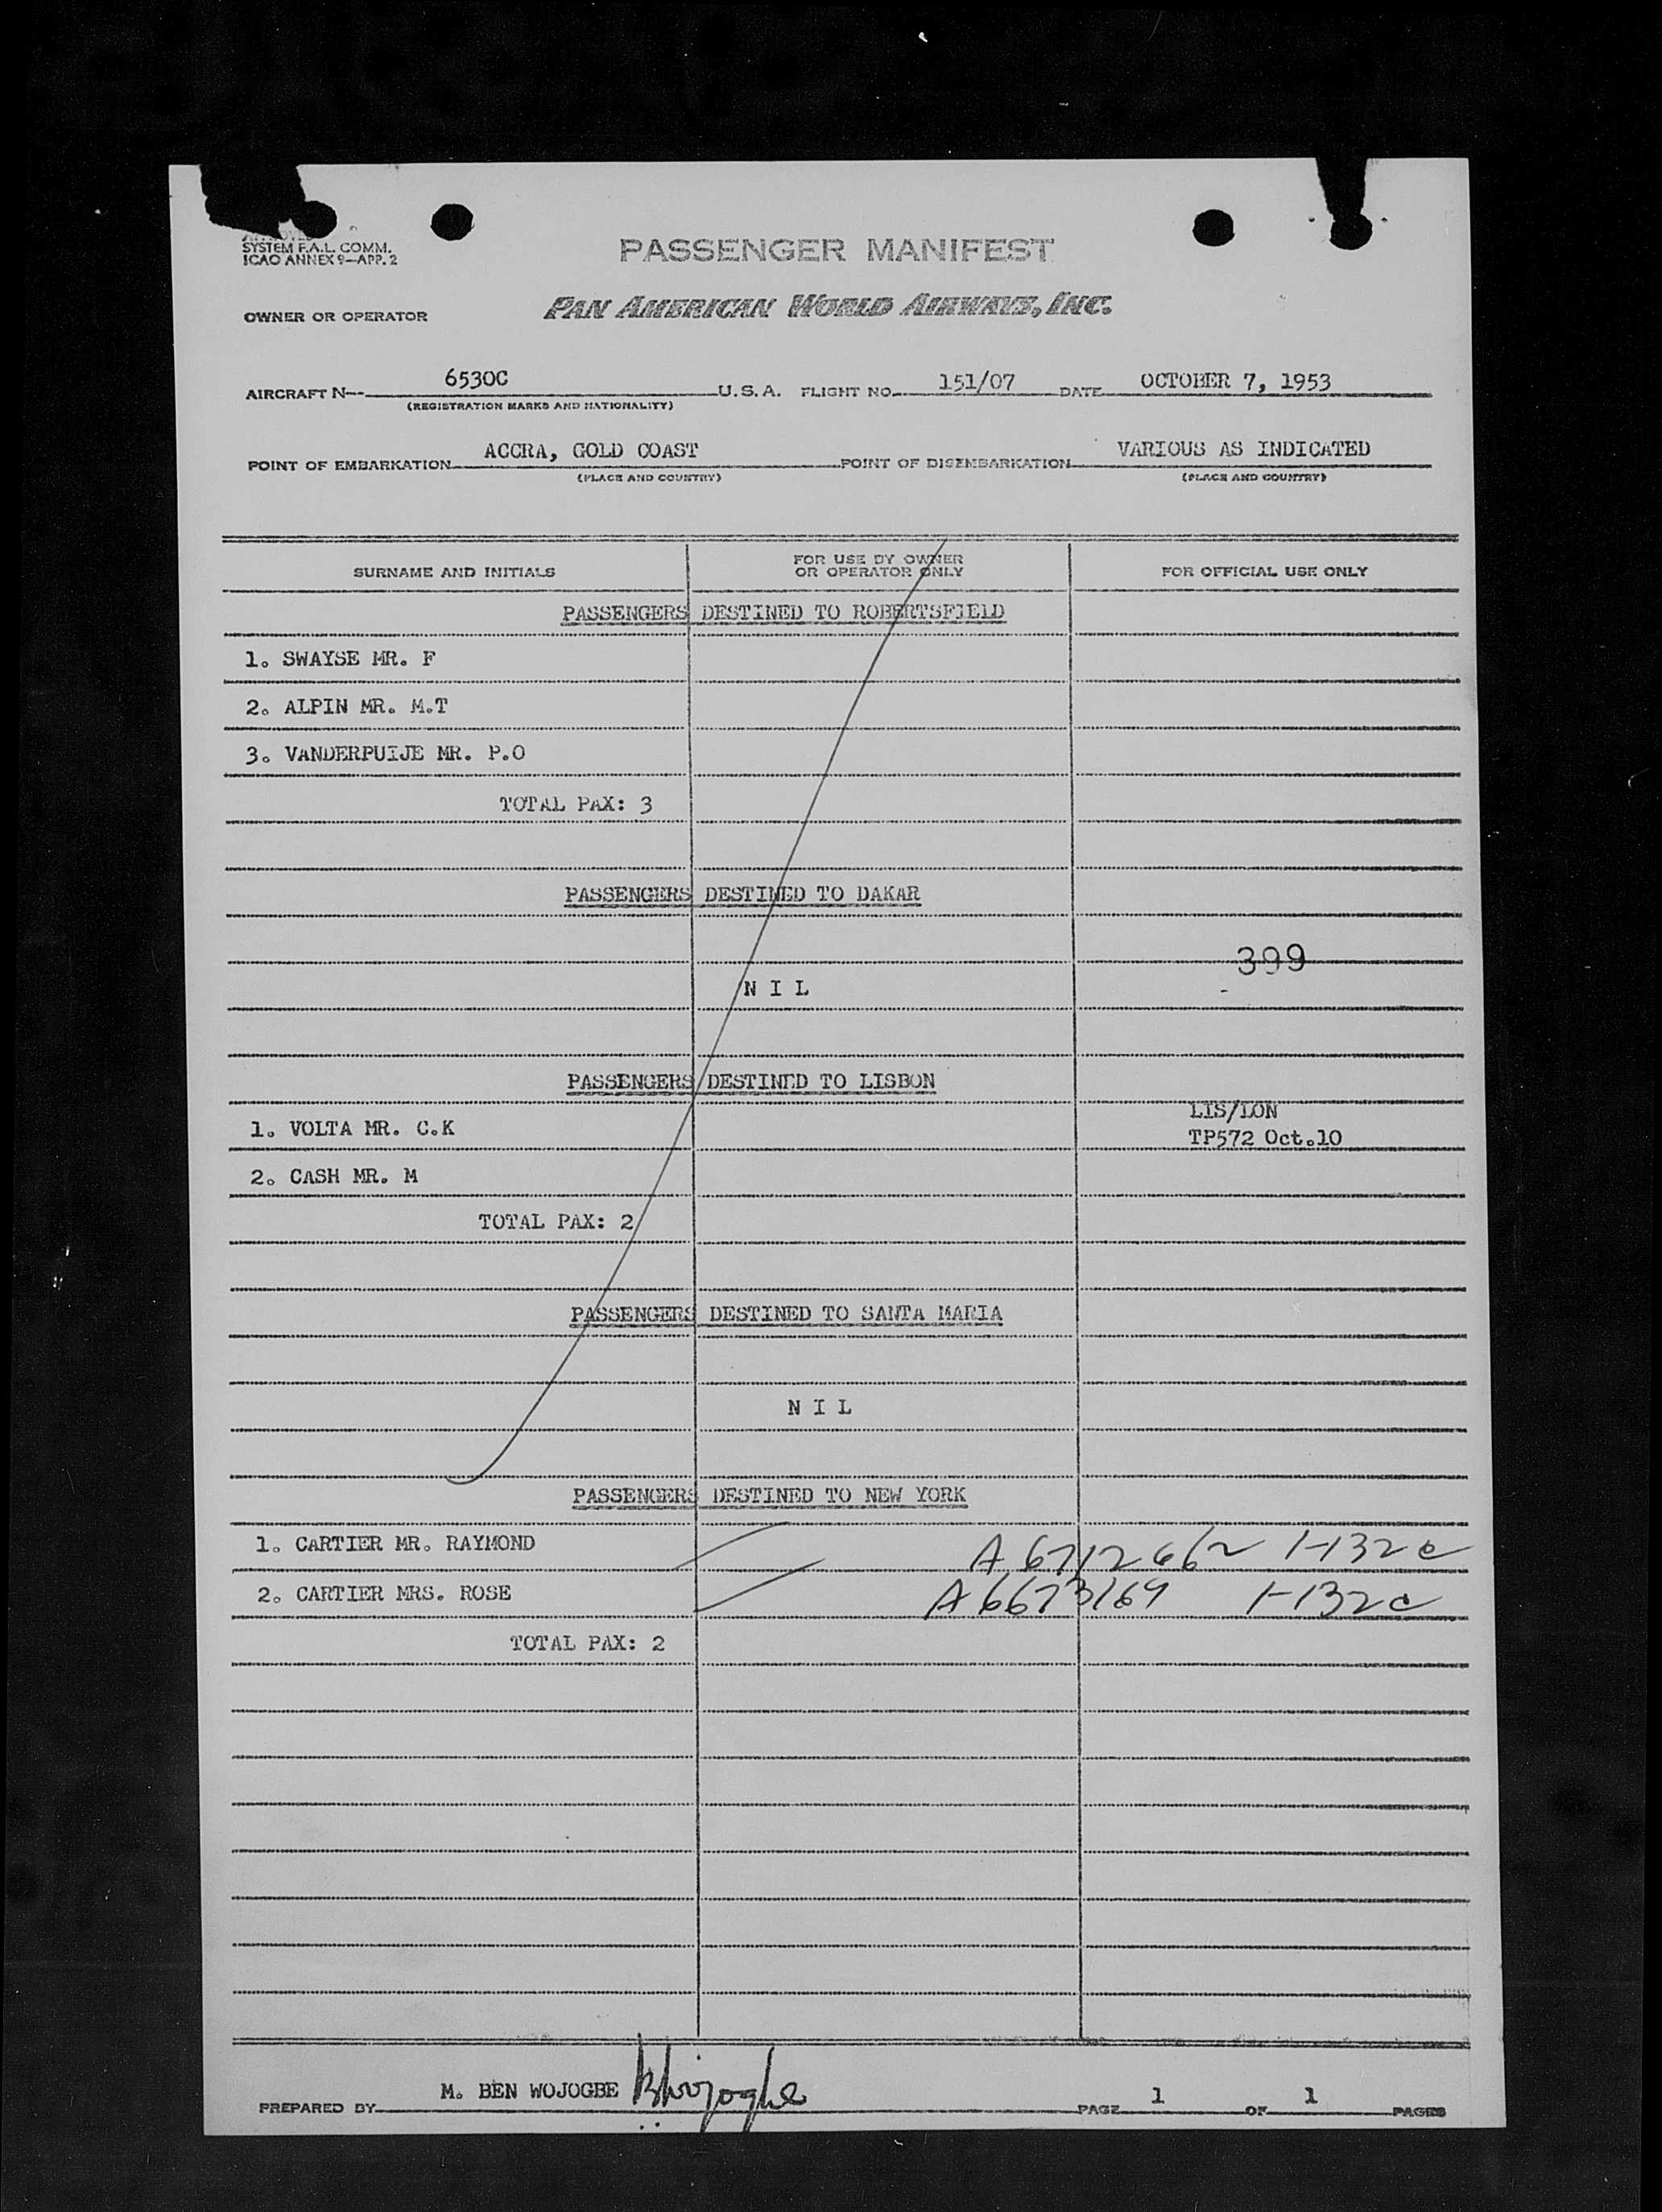 SYSTEM F.A.L. COMM.
ICAO ANNEX 9—APP. 2
PASSENGER MANIFEST
OWNER OR OPERATOR PAN AMERICAN WORLD AIRWAYS, INC.
AIRCRAFT N-- 6530C U.S.A. FLIGHT NO. 151/07 DATE OCTOBER 7, 1953
(REGISTRATION MARKS AND NATIONALITY)
POINT OF EMBARKATION ACCRA, GOLD COAST POINT OF DISEMBARKATION VARIOUS AS INDICATED
(PLACE AND COUNTRY) (PLACE AND COUNTRY)
SURNAME AND INITIALS FOR USE BY OWNER OR OPERATOR ONLY FOR OFFICIAL USE ONLY
PASSENGERS DESTINED TO ROBERTSFIELD
1. SWAYSE MR. F
2. ALPIN MR. M.T
3. VANDERPUIJE MR. P.O
TOTAL PAX: 3
PASSENGERS DESTINED TO DAKAR
399
N I L
PASSENGERS DESTINED TO LISBON
LIS/LON
1. VOLTA MR. C.K TP572 Oct.10
2. CASH MR. M
TOTAL PAX: 2
PASSENGERS DESTINED TO SANTA MARIA
N I L
PASSENGERS DESTINED TO NEW YORK
1. CARTIER MR. RAYMOND A 6712662 1-132c
2. CARTIER MRS. ROSE A 6673169 1-132c
TOTAL PAX: 2
PREPARED BY M. BEN WOJOGBE PAGE 1 OF 1 PAGES